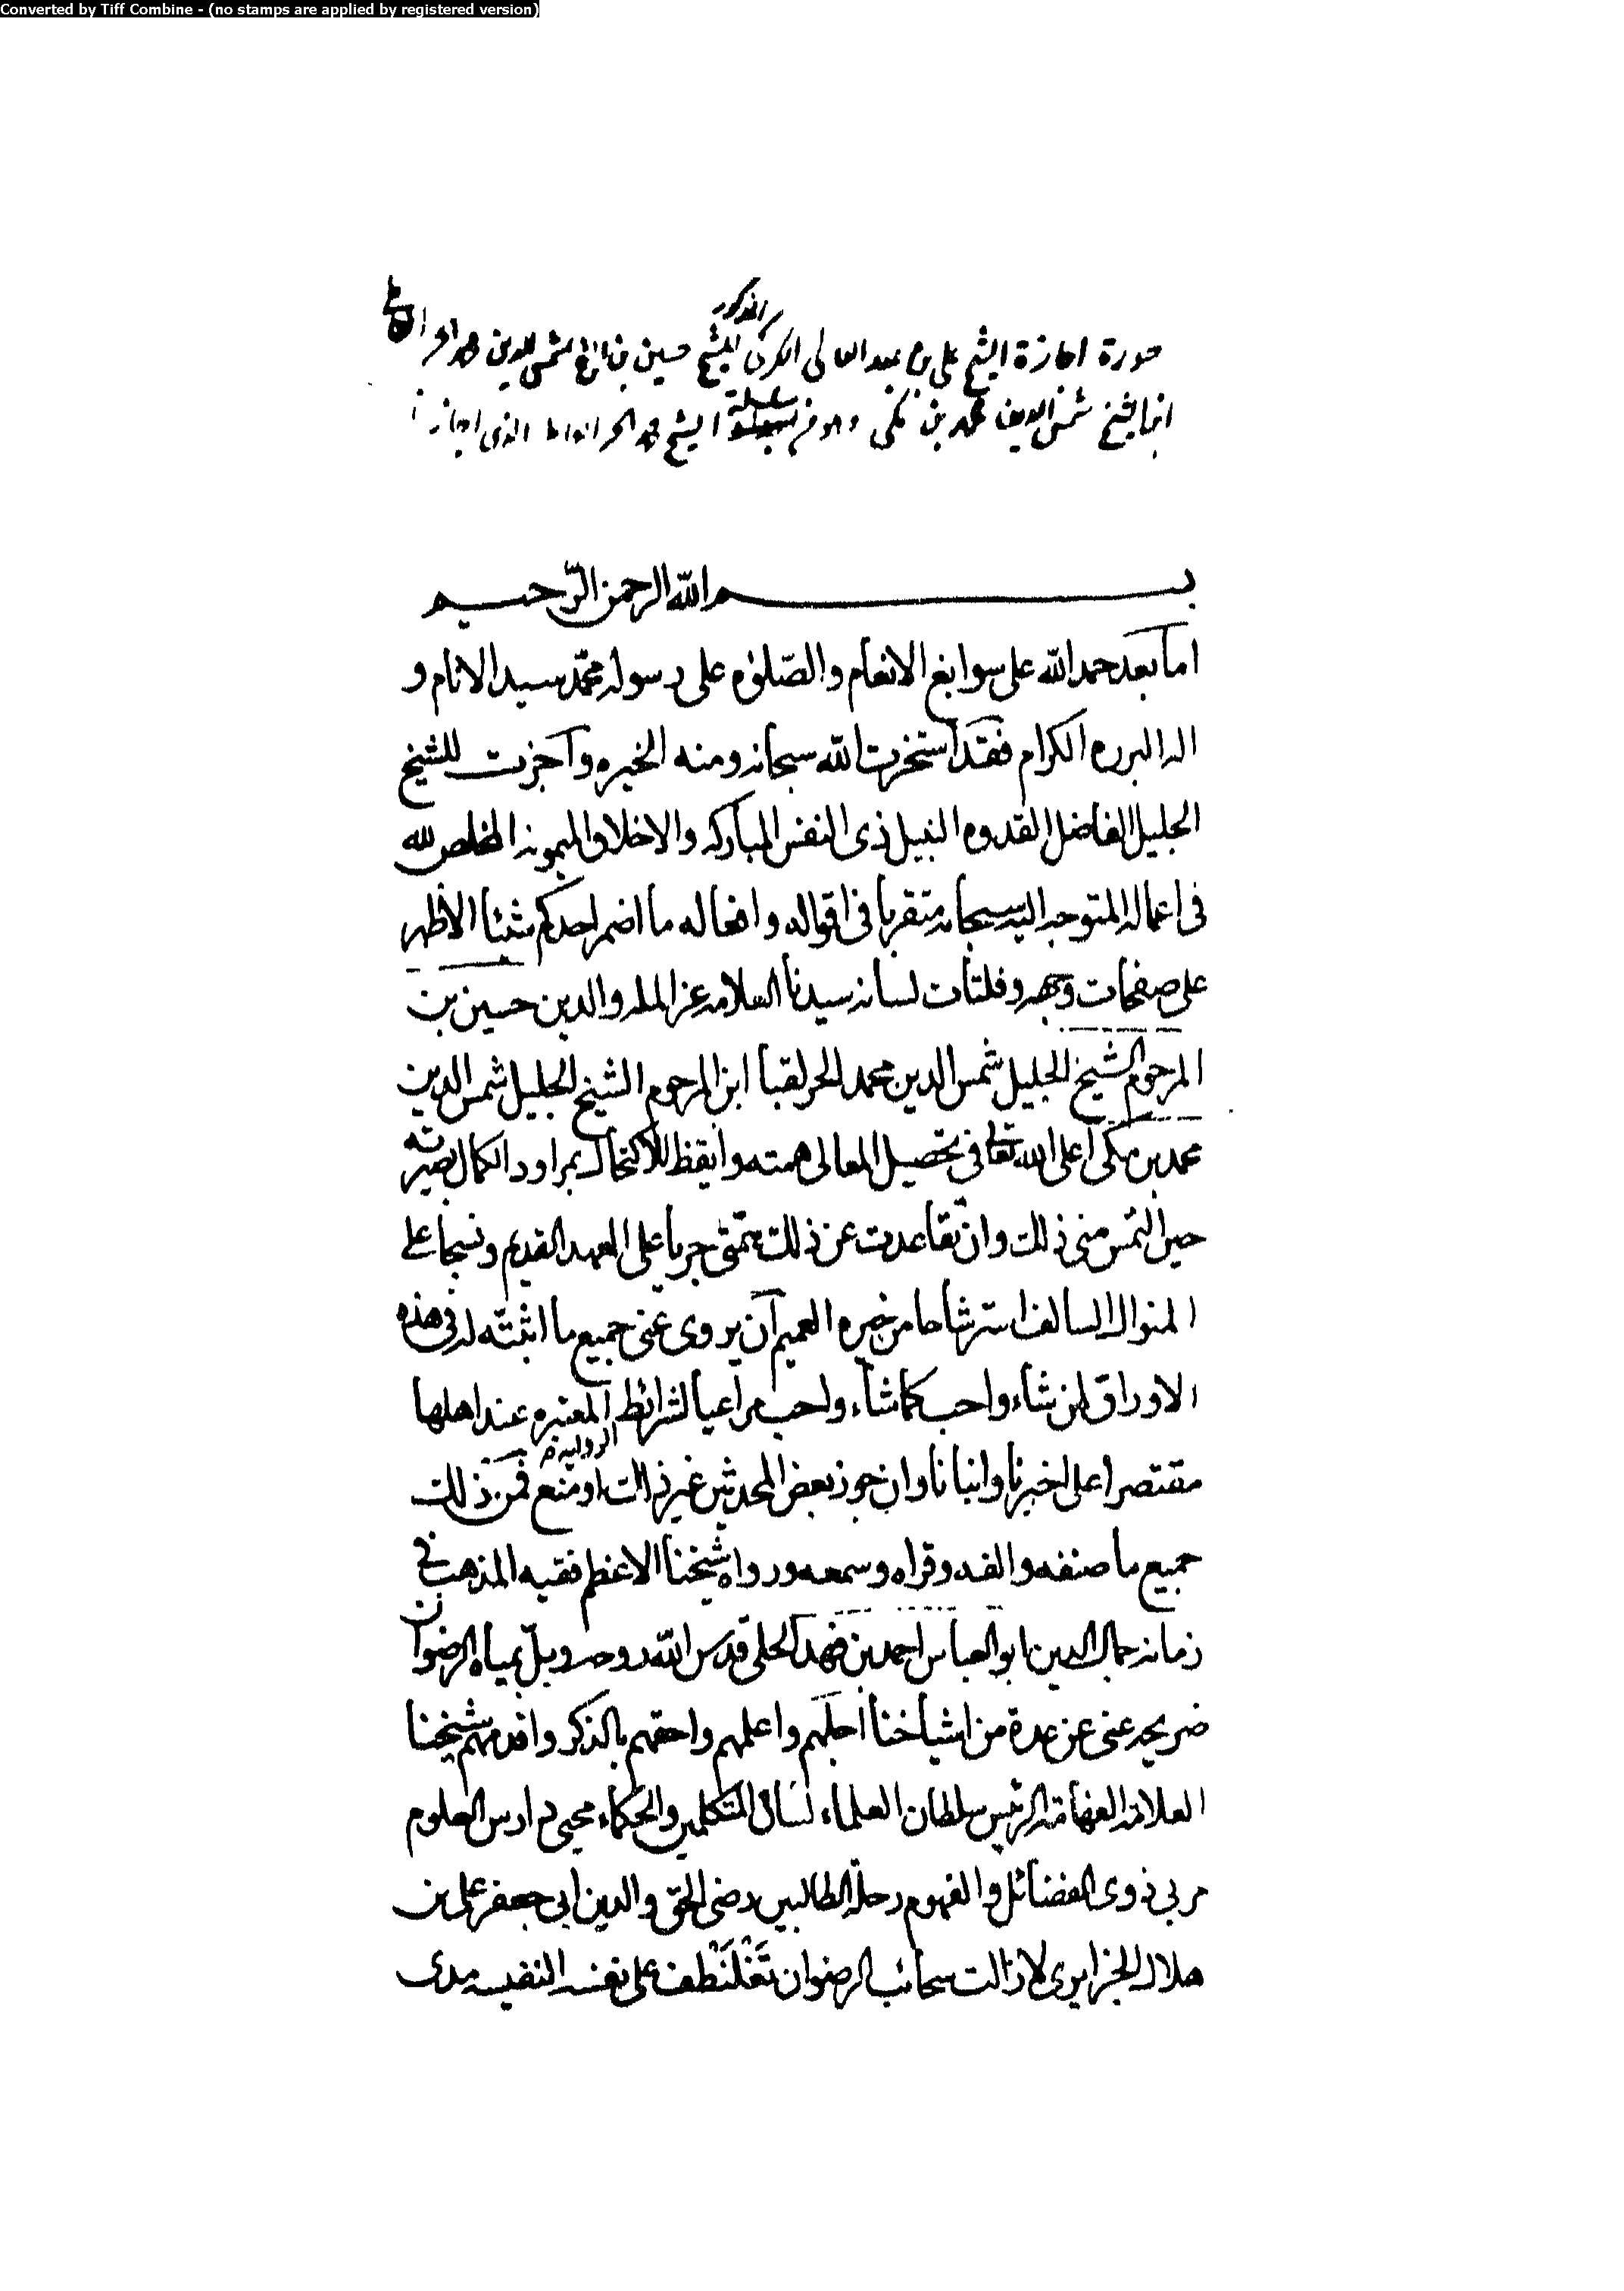 Converted by Tiff Combine - (no stamps are applied by registered version)
المذكور
صورة اجازة الشيخ علي بن عبد العالي الكركي للشيخ حسين بن الشيخ شمس الدين محمد الحر
ابن الشيخ شمس الدين محمد بن مكي وهو من سلسلة الشيخ محمد الحر الذي اجاز
بسم الله الرحمن الرحيم
اما بعد حمد الله على سوابغ الانعام والصلوة على رسوله محمد سيد الانام و
اله البرره الكرام فقد استخرت الله سبحانه ومنه الخيره وآجزت للشيخ
الجليل الفاضل القدوه النبيل ذى النفس المباركه والاخلاق الميمونه المخلص لله
فى اعماله المتوجه اليه سبحانه متقربا فى اقواله وافعاله ما اضمر احدكم شيئا الا ظهر
على صفحات وجهه وفلتات لسانه سيدنا العلامه عز المله والدين حسين بن
المرحوم الشيخ الجليل شمس الدين محمد الحر لقبا ابن المرحوم الشيخ الجليل شمس الدين
محمد بن مكى اعلى الله تعا فى تحصيل المعالى همته وايقظ للاكتحال بمراود الكمال بصيرته
حين التمس منى ذلك وان تقاعدت عن ذلك همتى جريا على العهد القديم ونسجا على
المنوال السالف استرشاحا من خيره العميم آن يروى عنى جميع ما اثبته له فى هذه
الاوراق لمن شاء واحب كما شاء واحب مراعيا لشرائط المعتبره عند اهلها
الروايه
مقتصرا على اخبرنا وانبانا وان جوز بعض المحدثين غير ذلك او منع فمن ذلك
جميع ما صنفه والفه وقراه وسمعه ورواه شيخنا الاعظم فقيه المذهب فى
زمانه جمال الدين ابو العباس احمد بن فهد الحلى قدس الله روحه وبل بمياه الرضوان
ضريحه عنى عن عدة من اشياخنا اجلهم واعلمهم واحقهم بالذكر واقدمهم شيخنا
العلامه الفهامة الرئيس سلطان العلماء لسان المتكلمين والحكماء محيى دارس العلوم
مربى ذوى الفضائل والفهوم رحلة الطالبين رضى الحق والدين ابى جعفر على بن
هلال الجزايرى لا زالت سحائب الرضوان على نفسه النفيسه مدى